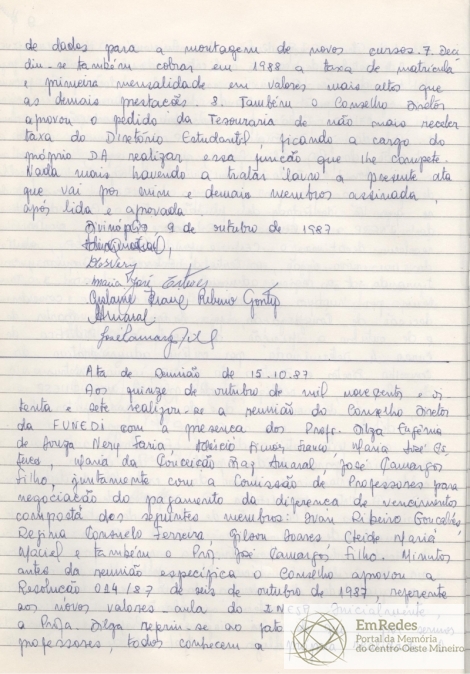 de dados para a montagem de novos cursos. 7. Deci
diu-se também cobrar em 1988 a taxa de matrícula
e primeira mensalidade em valores mais altos que
as demais prestações. 8. Também o Conselho Diretor
aprovou o pedido da Tesouraria de não mais receber
taxa do Diretório Estudantil, ficando a cargo do
próprio DA realizar essa função que lhe compete.
Nada mais havendo a tratar lavro a presente ata
que vai por mim e demais membros assinada,
após lida e aprovada.
Divinópolis, 9 de outubro de 1987
Maria José Esteves
Ribeiro Gontijo
Amaral
José Camargos Filho
Ata de Reunião de 15.10.87
Aos quinze de outubro de mil novecentos e oi
tenta e sete realizou-se a reunião do Conselho Diretor
da FUNEDI com a presença dos Profs. Dilza Eugênia
de Souza Nery Faria, Franco, Maria José Es
teves, Maria da Conceição Amaral, José Camargos
Filho, juntamente com a Comissão de Professores para
negociação do pagamento da diferença de vencimentos
composta dos seguintes membros: Ivan Ribeiro Gonçalves,
Regina Consuelo Ferreira, Gilson Soares, Cleide Maria
Maciel e também o Prof. José Camargos Filho. Minutos
antes da reunião específica o Conselho aprovou a
Resolução 014/87 de seis de outubro de 1987, referente
aos novos valores-aula do INESP. Inicialmente,
a Profa. Dilza referiu-se ao fato
professores, todos conhecem a
EmRedes
Portal da Memória
do Centro-Oeste Mineiro